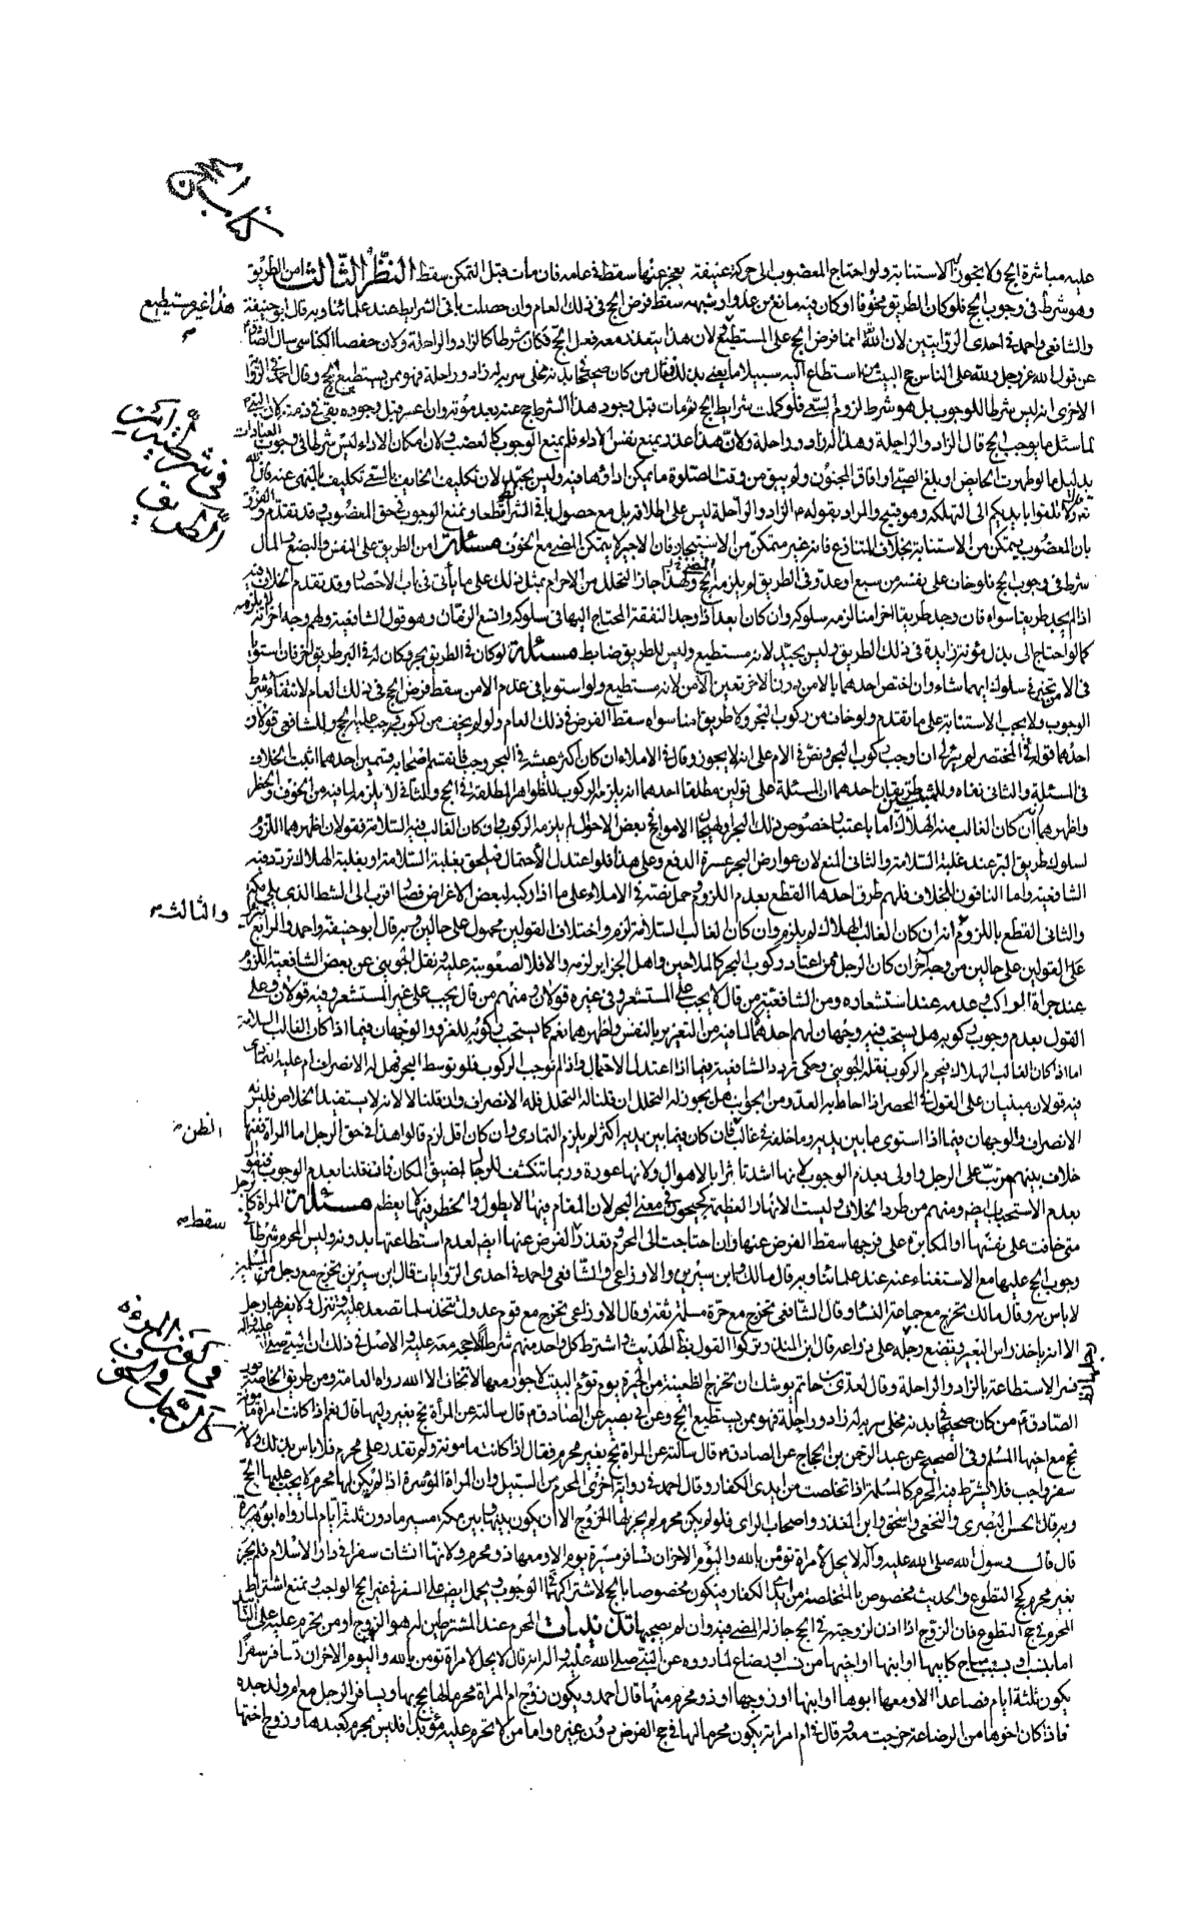 كتاب الحج
عليه مباشرة الحج ولا يجوز له الاستنابة ولو احتاج المعضوب الى حركة عنيفة يعجز عنها سقط في عامه فان مات قبل التمكن سقط النظر الثالث امن الطريق
وهو شرط في وجوب الحج فلو كان الطريق مخوفا او كان فيه مانع من عدو او شبهه سقط فرض الحج في ذلك العام وان حصلت باقي الشرايط عند علمائنا وبه قال ابو حنيفة
هذا غير مستطيع
والشافعي واحمد في احدى الروايتين لان الله انما فرض الحج على المستطيع ولان هذا يتعذر معه فعل الحج فكان شرطا كالزاد والراحلة ولان حفصا الكناسي سال الصادق
عن قول الله عز وجل ولله على الناس حج البيت من استطاع اليه سبيلا ما يعني بذلك قال من كان صحيحا في بدنه مخلى سربه له زاد وراحلة فهو ممن يستطيع الحج وقال احمد في الرواية
الاخرى انه ليس شرطا للوجوب بل هو شرط لزوم السعي فلو كملت شرايط الحج ثم مات قبل وجود هذا الشرط حج عنه بعد موته وان اعسر قبل وجوده بقي في ذمته لان النبي
لما سئل ما يوجب الحج قال الزاد والراحلة وهذا له زاد وراحلة ولان هذا عذر يمنع نفس الاداء فلم يمنع الوجوب كالعضب ولان امكان الاداء ليس شرطا في وجوب العبادات
في شرطية امن الطريق
بدليل ما لو طهرت الحايض او بلغ الصبي او افاق المجنون ولم يبق من وقت الصلوة ما يمكن اداؤها فيه وليس بجيد لان تكليف الخايف بالسعي تكليف بالمنهي عنه قال الله
تع ولا تلقوا بايديكم الى التهلكة وهو قبيح والمراد بقوله الزاد والراحلة ليس على اطلاقه بل مع حصول باقي الشرايط قطعا ونمنع الوجوب في حق المعضوب وقد تقدم والفرق
بان المعضوب يتمكن من الاستنابة بخلاف المتنازع فانه غير متمكن من الاستيجار فان الاجير لا يتمكن المضي مع الخوف مسئلة امن الطريق على النفس والبضع والمال
شرط في وجوب الحج فلو خاف على نفسه من سبع او عدو في الطريق لم يلزمه الحج ولهذا جاز التحلل من الاحرام بمثل ذلك على ما ياتي في باب الاحصار وقد تقدم الخلاف فيه
اذا لم يجد طريقا سواه فان وجد طريقا اخر امنا لزمه سلوكه وان كان ابعد اذا وجد النفقة المحتاج اليها في سلوكه واتسع الزمان وهو قول الشافعية ولهم وجه اخر انه لا يلزمه
كما لو احتاج الى بدل مؤنة زايدة في ذلك الطريق وليس بجيد لانه مستطيع وليس للطريق ضابط مسئلة لو كان في الطريق بحر وكان له في البر طريق اخر فان استويا
في الامن تخير في سلوك ايهما شاء وان اختص احدهما بالامن دون الاخر تعين الامن لانه مستطيع ولو استويا في عدم الامن سقط فرض الحج في ذلك العام لانتفاء شرط
الوجوب ولا يجب الاستنابة على ما تقدم ولو خاف من ركوب البحر ولا طريق امنا سواه سقط الفرض في ذلك العام ولو لم يخف من ركوبه وجب عليه الحج وللشافعي قولان
احدهما قوله في المختصر لم يبن لي ان اوجب ركوب البحر ونص في الام على انه لا يجوز وقال في الاملاء ان كان اكثر عيشه في البحر وجب فانقسم اصحابه قسمين احدهما اثبت الخلاف
في المسئلة والثاني نفاه وللمثبتين طريقان احدهما ان المسئلة على قولين مطلقا احدهما انه يلزمه الركوب للظواهر المطلقة في الحج والثاني لا يلزم لما فيه من الخوف والخطر
واظهرهما انه ان كان الغالب منه الهلاك اما باعتبار خصوص ذلك البحر او لهيجان الامواج في بعض الاحوال لم يلزمه الركوب وان كان الغالب فيه السلامة فقولان اظهرهما اللزوم
لسلوك طريق البر عند غلبة السلامة والثاني المنع لان عوارض البحر عسرة الدفع وعلى هذا فلو اعتدل الاحتمال فيلحق بغلبة السلامة او بغلبة الهلاك تردد فيه
الشافعية واما النافون للخلاف فلهم طرق احدها القطع بعدم اللزوم وحمل نصه في الاملاء على ما اذا ركبه لبعض الاغراض فصار اقرب الى الشط الذي يلي مكة
والثاني القطع باللزوم والثالث انه ان كان الغالب الهلاك لم يلزم وان كان الغالب السلامة لزم واختلاف القولين محمول على حالين وبه قال ابو حنيفة واحمد والرابع
على القولين على حالين من وجه اخر ان كان الرجل ممن اعتاد ركوب البحر كالملاحين واهل الجزاير لزمه والا فلا لصعوبته عليه ونقل الجويني عن بعض الشافعية اللزوم
عند جراة الراكب وعدمه عند استشعاره ومن الشافعية من قال لا يجب على المستشعر وفي غيره قولان ومنهم من قال يجب على غير المستشعر وفيه قولان وعلى
القول بعدم وجوب ركوبه هل يستحب فيه وجهان لهم احدهما لا لما فيه من التغرير بالنفس واظهرهما نعم كما يستحب ركوبه للغزو والوجهان فيما اذا كان الغالب السلامة
اما اذا كان الغالب الهلاك فيحرم الركوب نقله الجويني وحكى تردد الشافعية فيما اذا اعتدل الاحتمال واذا لم نوجب الركوب فلو توسط البحر فهل له الانصراف ام عليه التمادي
فيه قولان مبنيان على القولين في المحصر اذا احاط به العدو من الجوانب هل يجوز له التحلل ان قلنا له التحلل فله الانصراف وان قلنا لا لانه لا يستفيد الخلاص فليس له
الانصراف والوجهان فيما اذا استوى ما بين يديه وما خلفه في غالب الظن فان كان فيما بين يديه اكثر لم يلزم التمادي وان كان اقل لزم قالوا هذا في حق الرجل اما المراة ففيها
خلاف بينهم مرتب على الرجل واولى بعدم الوجوب لانها اشد تاثرا بالاهوال ولانها عورة وربما تنكشف للرجال لضيق المكان فان قلنا بعدم الوجوب فنقول
بعدم الاستحباب ايضا ومنهم من طرد الخلاف وليست الانهار العظيمة كجيحون في معنى البحر لان المقام فيها لا يطول والخطر فيها لا يعظم مسئلة المراة كالرجل
متى خافت على نفسها او المكابرة على فرجها سقط الفرض عنها وان احتاجت الى المحرم وتعذر سقط الفرض عنها ايضا لعدم استطاعتها بدونه وليس المحرم شرطا في
وجوب الحج عليها مع الاستغناء عنه عند علمائنا وبه قال مالك وابن سيرين والاوزاعي والشافعي واحمد في احدى الروايات قال ابن سيرين تخرج مع رجل من المسلمين
لا باس به وقال مالك تخرج مع جماعة النساء وقال الشافعي تخرج مع حرة مسلمة ثقة وقال الاوزاعي تخرج مع قوم عدول تتخذ سلما تصعد عليه وتنزل ولا يقربها رجل
في كون المرأة كالرجال في الخوف
الا انه ياخذ راس البعير وتضع رجله على ذراعه قال ابن المنذر تركوا القول بظاهر الحديث واشترط كل واحد منهم شرطا لا حجة معه عليه والاصل في ذلك ان النبي صلى الله عليه واله
فسر الاستطاعة بالزاد والراحلة وقال لعدي بن حاتم يوشك ان تخرج الظعينة من الحيرة يوم تؤم البيت لا جوار معها لا تخاف الا الله رواه العامة ومن طريق الخاصة قول
الصادق من كان صحيحا في بدنه مخلى سربه له زاد وراحلة فهو ممن يستطيع الحج وعن ابي بصير عن الصادق قال سالته عن المراة تحج بغير وليها قال نعم اذا كانت امراة مامونة
تحج مع اخيها المسلم وفي الصحيح عن عبد الرحمن بن الحجاج عن الصادق قال سالته عن المراة تحج بغير محرم فقال اذا كانت مامونة ولم تقدر على محرم فلا باس بذلك ولانه
سفر واجب فلا يشترط فيه المحرم كالمسلمة اذا تخلصت من ايدي الكفار وقال احمد في رواية اخرى المحرم من السبيل وان المراة الموسرة اذا لم يكن لها محرم لا يجب عليها الحج
وبه قال الحسن البصري والنخعي واسحق وابن المنذر واصحاب الراي فلو لم يكن محرم لم يجز لها الخروج الا ان يكون بينها وبين مكة مسير ما دون ثلثة ايام لما رواه ابو هريرة
قال قال رسول الله صلى الله عليه واله لا يحل لامراة تؤمن بالله واليوم الاخر ان تسافر مسيرة يوم الا ومعها ذو محرم ولانها انشات سفرا في دار الاسلام فلم يجز
بغير محرم كحج التطوع والحديث مخصوص بالمتخلصة من ايدي الكفار فيكون مخصوصا بالحج لاشتراكهما في الوجوب ويحمل ايضا على السفر في غير الحج الواجب ونمنع اشتراط
المحرم في حج التطوع فان الزوج اذا اذن لزوجته في الحج جاز لها المضي فيه وان لم يصحبها تذنيبات المحرم عند المشترطين له هو الزوج او من تحرم عليه على التابيد
اما بنسب او بسبب مباح كابيها او ابنها او اخيها من نسب او رضاع لما رووه عن النبي صلى الله عليه واله انه قال لا يحل لامراة تؤمن بالله واليوم الاخر ان تسافر سفرا
يكون ثلثة ايام فصاعدا الا ومعها ابوها او ابنها او زوجها او ذو محرم منها قال احمد ويكون زوج ام المراة محرما لها يحج بها ويسافر الرجل مع ام ولد جده
فاذا كان اخوها من الرضاعة خرجت معه وقال في ام امراته يكون محرما لها في حج الفرض دون غيره واما من لا تحرم عليه مؤبدا فليس بمحرم كعبدها وزوج اختها